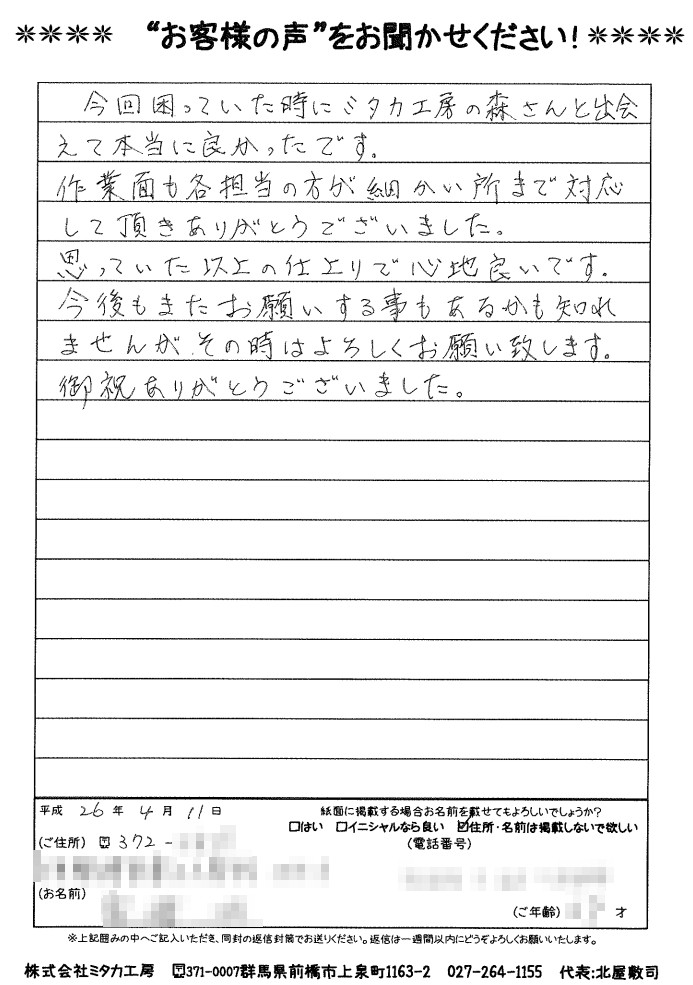 ＊＊＊＊ “お客様の声”をお聞かせください！ ＊＊＊＊
今回困っていた時にミタカ工房の森さんと出会
えて本当に良かったです。
作業面も各担当の方が細かい所まで対応
して頂きありがとうございました。
思っていた以上の仕上りで心地良いです。
今後もまたお願いする事もあるかも知れ
ませんが、その時はよろしくお願い致します。
御祝ありがとうございました。
平成 26 年 4 月 11 日
紙面に掲載する場合お名前を載せてもよろしいでしょうか?
□はい □イニシャルなら良い ☑住所・名前は掲載しないで欲しい
(ご住所) 〒372-
(電話番号)
(お名前)
(ご年齢) 才
※上記囲みの中へご記入いただき、同封の返信封筒でお送りください。返信は一週間以内にどうぞよろしくお願いいたします。
株式会社ミタカ工房 〒371-0007群馬県前橋市上泉町1163-2 027-264-1155 代表:北屋敷司